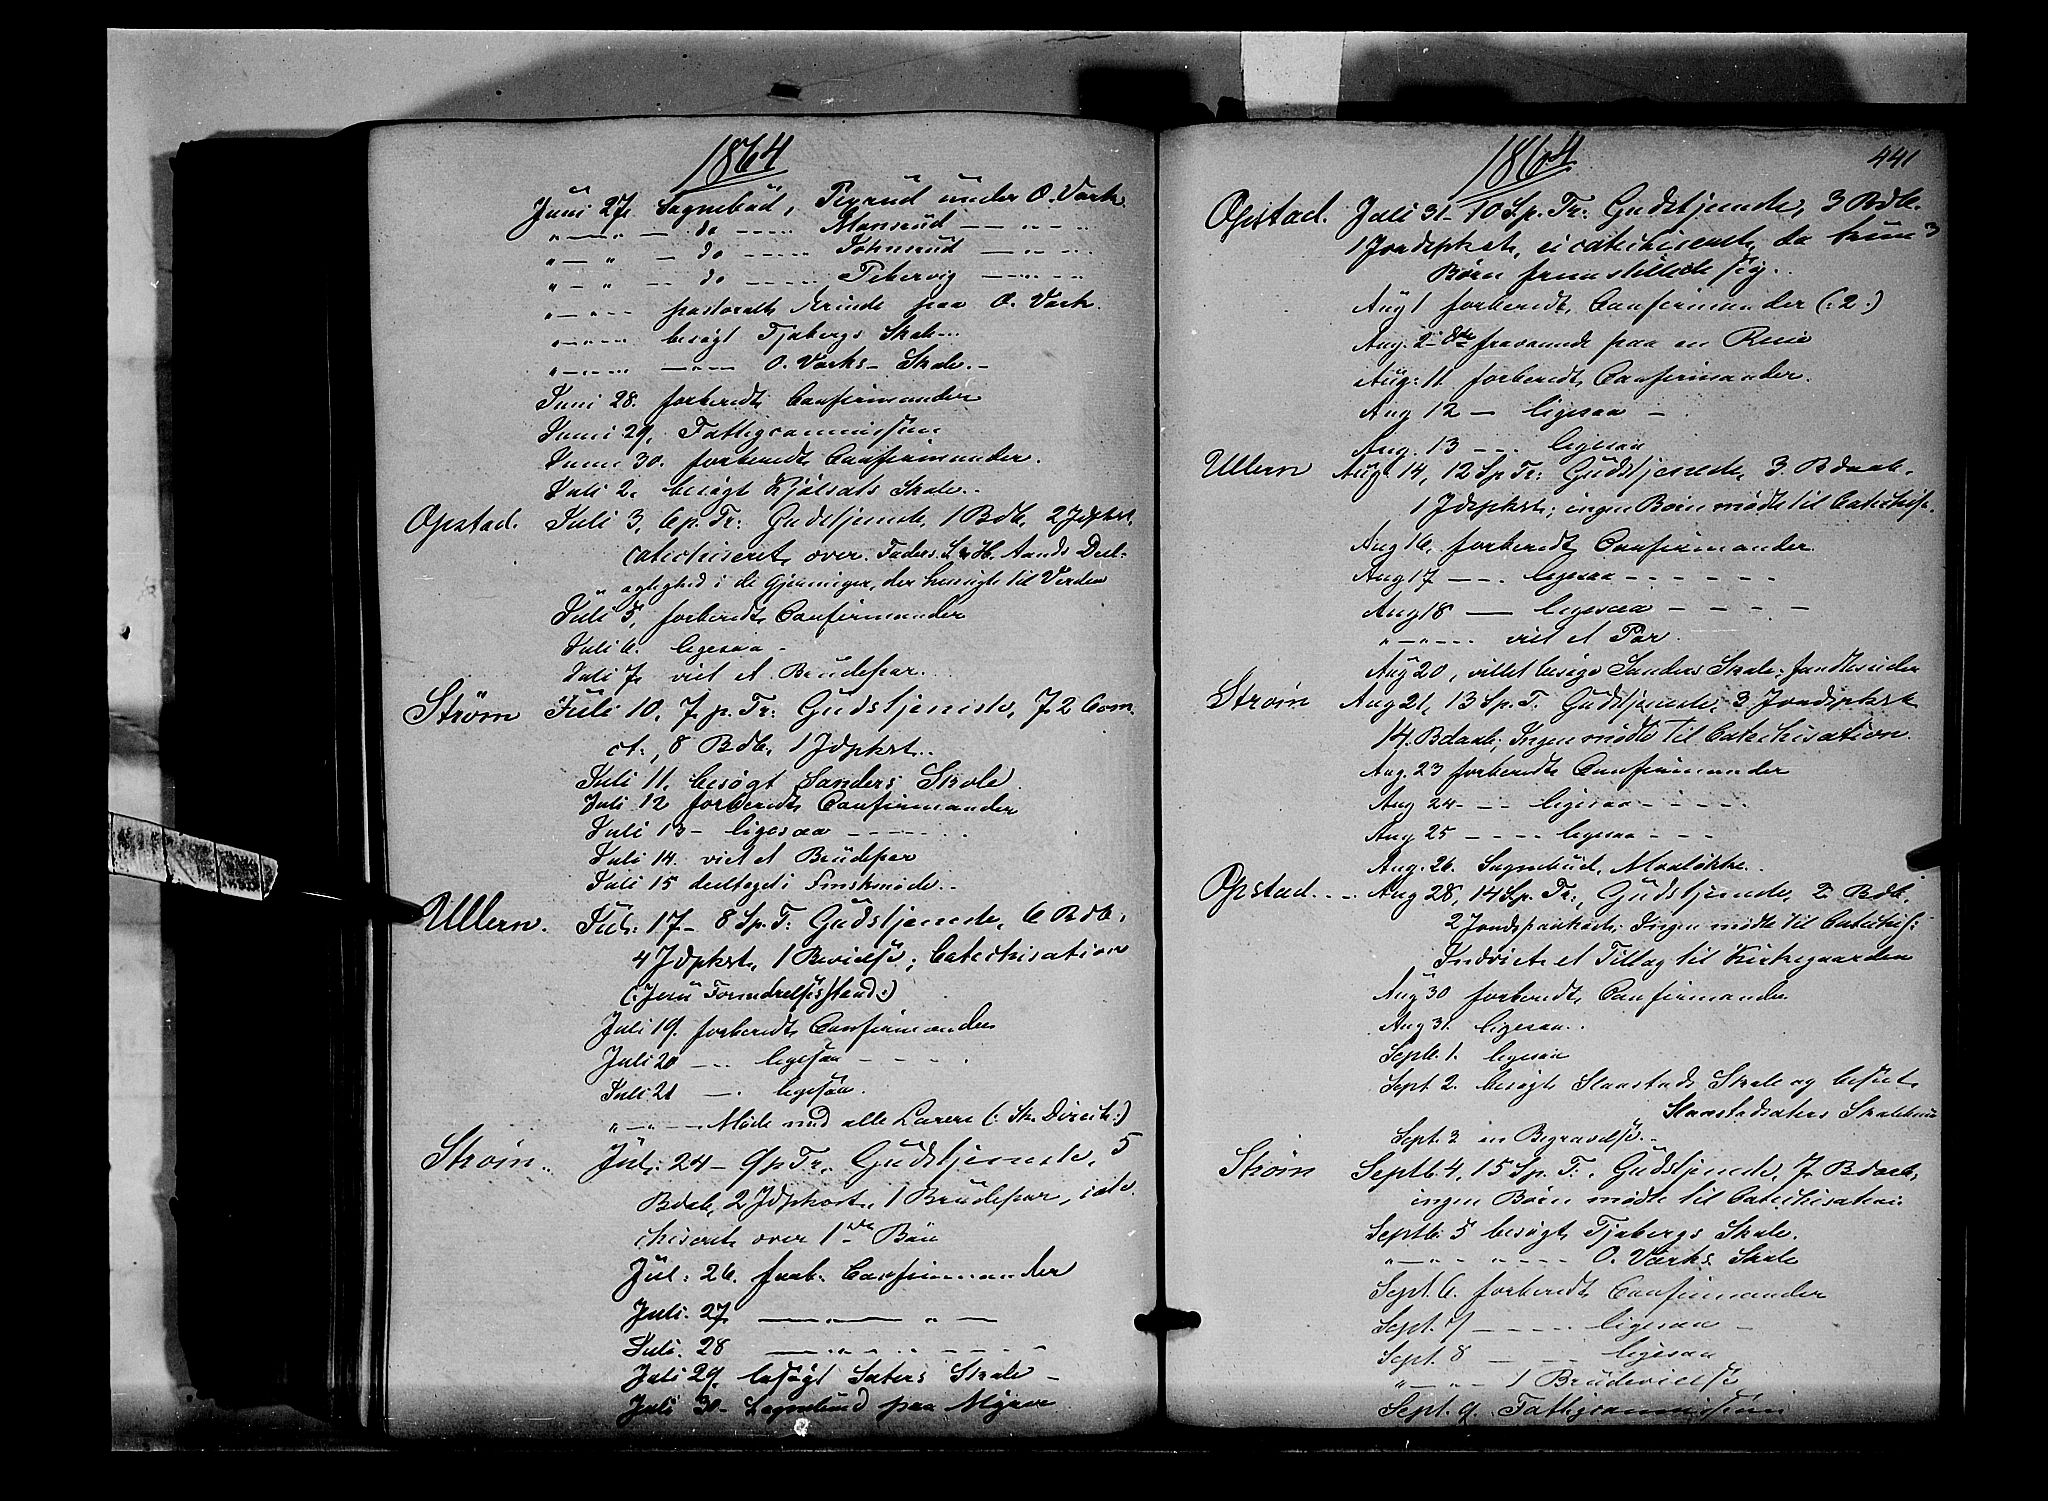 1864
Juni 27, Sognebud, Ryrud under O. Værk.
" — " — do ---- Mansrud — " -
" — " — do ---- Johnsrud — " -
" — " — do ---- Pekervig — " -
" — " — pastoralt Ærinde paa O. Værk.
" — " — besøgt Tjabergs Skole
" — " — — " — O. Værks Skole. -
Juni 28. forberedt Confirmander
Juni 29, Fattigcommission
Juni 30. forberedt Confirmander.
Juli 2. besøgt Skole.
Opstad. Juli 3, 6 p. Tr: Gudstjeneste, 1 Bdb, 2 Jdpkst,
catechiseret over Faders, S. & H. Aands Deel-
agtighed i de Gjerninger, der henvigte til Verden
Juli 5, forberedt Confirmander
Juli 6. ligesaa -
Juli 7, viet et Brudepar.
Strøm Juli 10, 7 p. Tr: Gudstjeneste, 72 Com-
ct., 8 Bdb, 1 Jdpkst..
Juli 11, besøgt Sanders Skole
Juli 12 forberedt Confirmander
Juli 13 - ligesaa - - - -
Juli 14. viet et Brudepar
Juli 15 deeltaget i møde. -
Ullern. Juli 17 - 8 S. p. T: Gudstjeneste, 6 Bdb,
4 Jdpkst, 1 Bevielse; Catechisation
(: Jesu Fornedrelsesstand :)
Juli 19. forberedt Confirmander
Juli 20 - - - ligesaa - - - -
Juli 21 - - ligesaa.
" — " — Møde med alle Lærere (: Sk. Direct :)
Strøm. Juli 24 - 9 p Tr. Gudstjeneste, 5
Bdab, 2 Jdpkst, 1 Brudepar, cate-
chiseret over 1ste Bøn
Jul: 26. forb. Confirmander
Juli 27 — " — " —
Juli 28 — " — " — " -
Juli 29, besøgt Sæters Skole -
Juli 30 - Sognebud paa Myrer
1864 441
Opstad. Juli 31 - 10 S. p. Tr: Gudstjeneste, 3 Bdb.
1 Jordpkst, ei catechiseret, da kun 3
Børn fremstillede sig.
Aug 1 forberedt Confirmander (: 2 :)
Aug. 2 - 8de fraværende paa en Reise
Aug: 11. forberedt Confirmander.
Aug 12 — ligesaa - .
Aug. 13 — ligesaa
Ullern Aug 14, 12 S. p. Tr: Gudstjeneste, 3 Bdaab.
1 Jdpkst; ingen Børn mødte til Catechise.
Aug 16, forberedt Confirmander.
Aug 17 - - . ligesaa - - - - - -
Aug 18 — ligesaa - - - -
" — " - - viet et Par.
Aug 20, villet besøge Sanders Skole,
Strøm Aug 21, 13 S. p. T. Gudstjeneste; 3 Jordspkst
14. Bdaab; Ingen mødte til Catechisation.
Aug. 23 forberedt Confirmander
Aug 24 - - - ligesaa - - - -
Aug 25 - - - - ligesaa - - -
Aug. 26. Sognebud, Moeløkke.
Opstad. . . Aug 28, 14 S. p. Tr:, Gudstjeneste, 2 Bdb.
2 Jordspaakast; Ingen mødte til Catechis:
Indviet et Tillæg til Kirkegaarden
Aug 30 forberedt Confirmander
Aug 31. ligesaa. .
Septb. 1. ligesaa
Sept. 2. besøgt Slaastads Skole og beseet
Skolehuus
Sept. 3 en Begravelse. -
Strøm Septb. 4, 15 S. p. T:, Gudstjeneste, 7 Bdaab,
ingen Børn mødte til Catechisation
Septb. 5 besøgt Tjabergs Skole.
" — " - " - - - - O. Værks Skole
Sept. 6. forberedt Confirmander
Sept. 7 - - - - ligesaa -
Sept. 8 - - - ligesaa
" — " - - 1 Brudevielse
Sept. 9. Fattigcommission